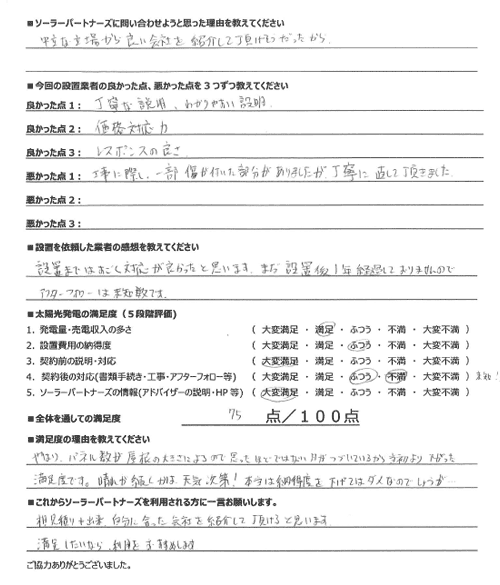 ■ソーラーパートナーズに問い合わせようと思った理由を教えてください
中立な立場から良い会社を紹介して頂けそうだったから.
■今回の設置業者の良かった点、悪かった点を3つずつ教えてください
良かった点1： 丁寧な説明、わかりやすい説明.
良かった点2： 価格対応力
良かった点3： レスポンスの良さ.
悪かった点1： 工事に際し、一部傷が付いた部分がありましたが、丁寧に直して頂きました.
悪かった点2：
悪かった点3：
■設置を依頼した業者の感想を教えてください
設置まではすごく対応が良かったと思います. まだ設置後1年経過しておりませんので
アフターフォローは未知数です.
■太陽光発電の満足度（5段階評価)
1. 発電量・売電収入の多さ （ 大変満足 ・ 満足 ・ ふつう ・ 不満 ・ 大変不満 ）
2. 設置費用の納得度 （ 大変満足 ・ 満足 ・ ふつう ・ 不満 ・ 大変不満 ）
3. 契約前の説明・対応 （ 大変満足 ・ 満足 ・ ふつう ・ 不満 ・ 大変不満 ）
4. 契約後の対応(書類手続き・工事・アフターフォロー等) （ 大変満足 ・ 満足 ・ ふつう ・ 不満 ・ 大変不満 ）
5. ソーラーパートナーズの情報(アドバイザーの説明・HP 等) （ 大変満足 ・ 満足 ・ ふつう ・ 不満 ・ 大変不満 ）
■全体を通しての満足度 75 点／100点
■満足度の理由を教えてください
やはり、パネル数が屋根の大きさによるので思ったほどではない月がつづいているから当初より下がった
満足度です. 晴れが続くかは天気次第！本当は納得度を下げてはダメなのでしょうが…
■これからソーラーパートナーズを利用される方に一言お願いします。
相見積りも出来、自分に合った会社を紹介して頂けると思います.
満足したいなら、利用をお勧めします
ご協力ありがとうございました。